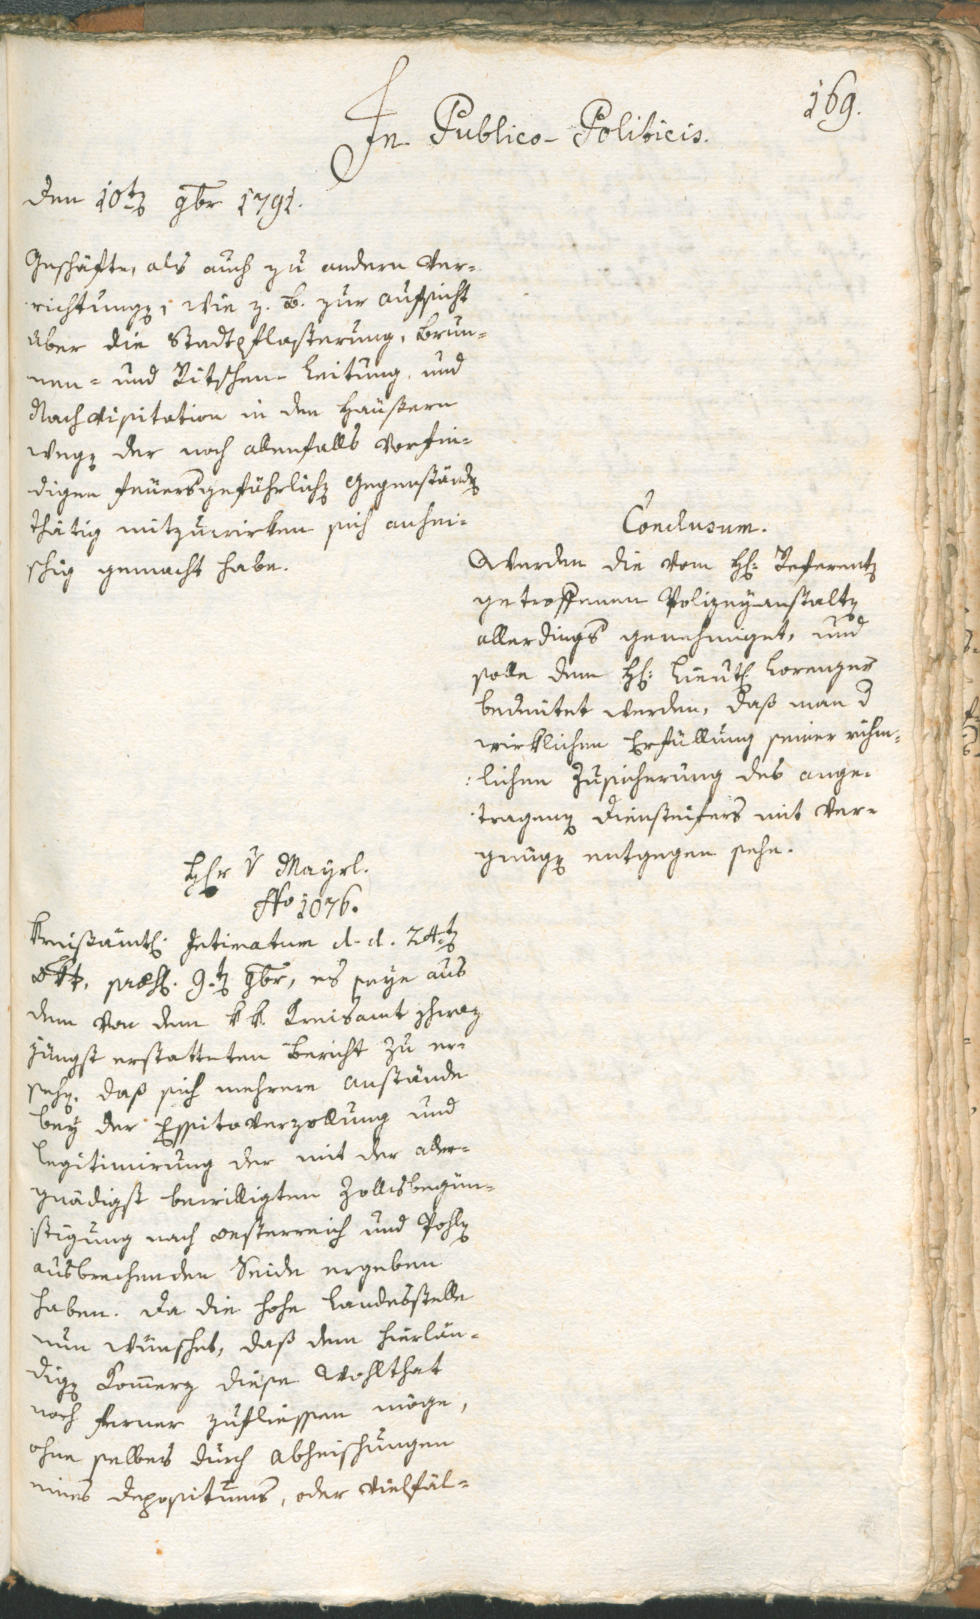 169.
In Publico-Politicis.
Den 10ten 9br 1791.
Geschäfte, als auch zu andern Ver=
richtungen, wie z. B. zur Aufsicht
über die Stadtpflasterung, Brun=
nen= und Ritschen-Leitung, und
Nachvisitation in den Häußern
wegen der noch allenfalls vorfin=
digen feuersgefährlichen Gegenständen
thätig mitzuwirken sich anhei=
schig gemacht habe.
Conclusum.
Werden die vom H: Referenten
getroffenen Polizeyanstalten
allerdings genehmiget, und
solle dem H: Lieut: Lorenzer
bedeutet werden, daß man d
wirklichen Erfüllung seiner rühm=
lichen Zusicherung des ange=
tragenen Diensteifers mit Ver=
gnügen entgegen sehe.
Hr v Mayrl.
No 1076.
Kreißämtl: Intimatum d. d. 24ten
8br, præs: 9ten 9br, es seye aus
dem von dem kk. Kreisamt Schwaz
jüngst erstatteten Bericht zu er=
sehen, daß sich mehrere Anstände
bey der Essitoverzollung und
Legitimirung der mit der aller=
gnädigst bewilligten Zollsbegün=
stigung nach Oesterreich und Pohlen
ausbrechenden Seide ergeben
haben. Da die hohe Landesstelle
nun wünschet, daß dem hierlän=
digen Kommerz diese Wohlthat
noch ferner zufliessen möge,
ohne selbes durch Abheischungen
eines Depositums, oder vielfäl=